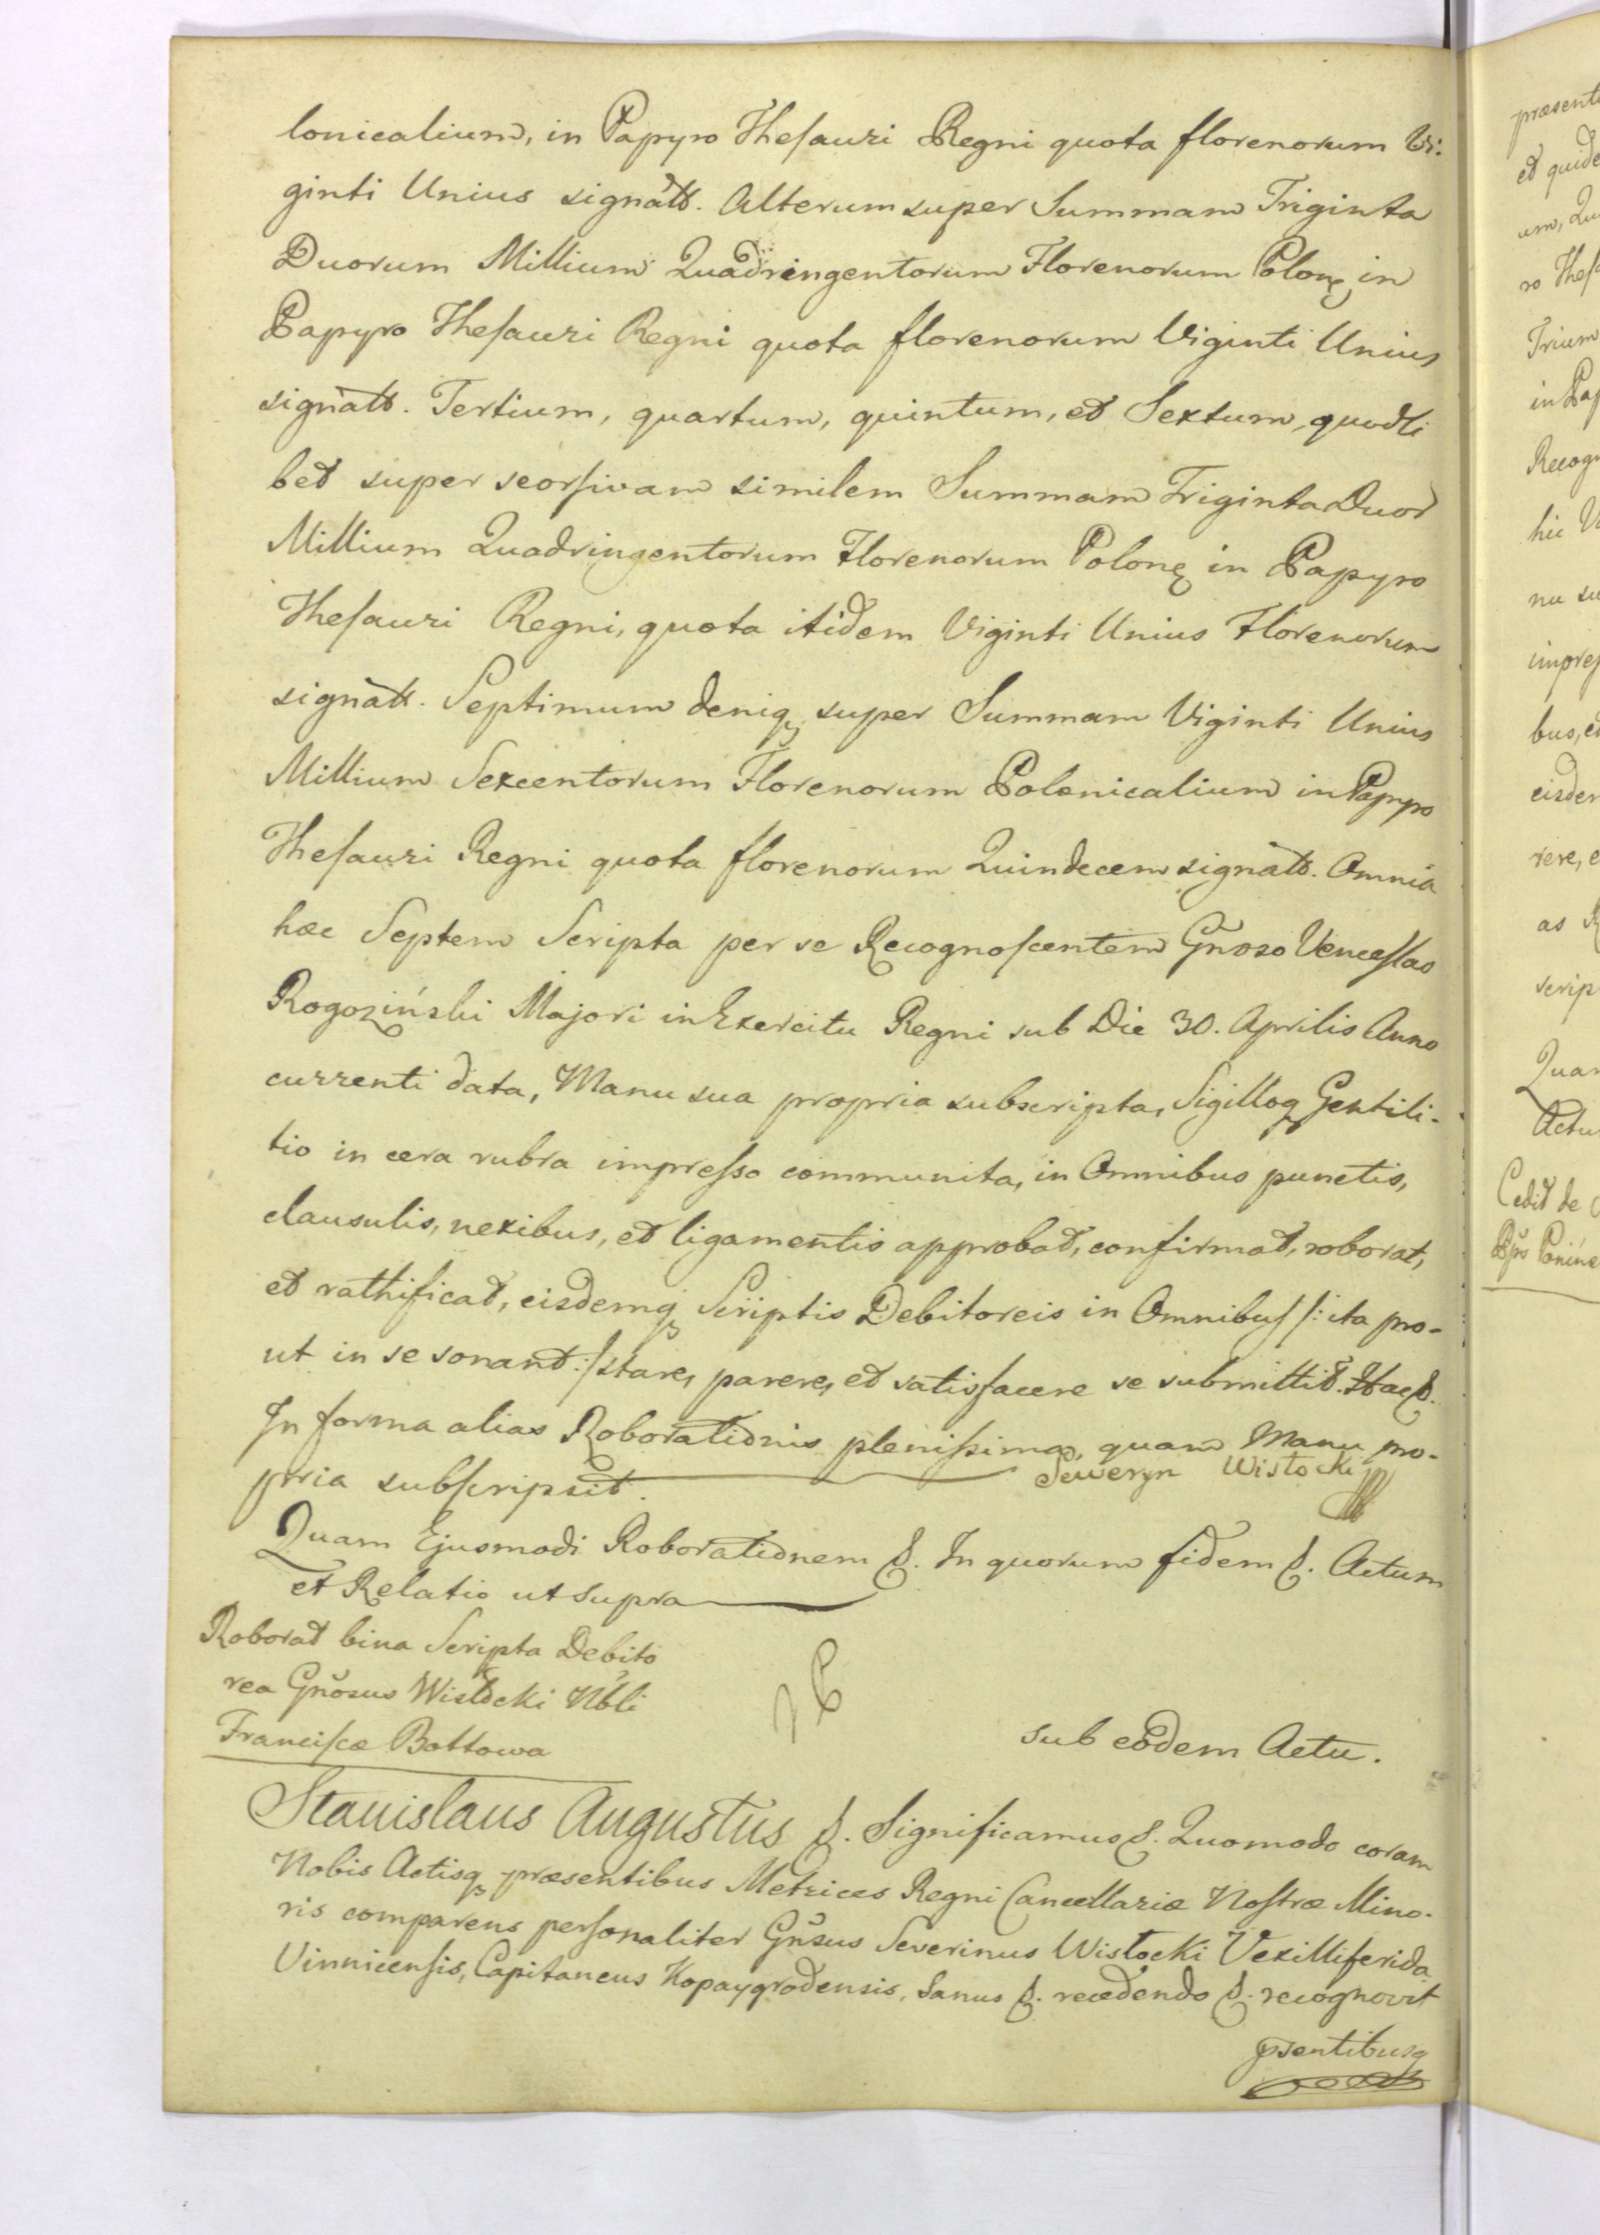 lonicalium, in Papyro Thesauri Regni quota florenorum Vi-
ginti Unius signatt. Alterum super Summam Triginta
Duorum Millium Quadringentorum Florenorum Polonę in
Papyro Thesauri Regni quota florenorum Viginti Unius
signatt. Tertium, quartum, quintum, et Sextum, quodli
bet super seorsivam similem Summam Triginta Duor
Millium Quadringentorum Florenorum Polonę in Papyro
Thesauri Regni, quota itidem Viginti Unius Florenorum
signatt. Septimum deniq super Summam Viginti Unius
Millium Sexcentorum Florenorum Polonicalium in Papyro
Thesauri Regni quota florenorum Quindecem signatt. Omnia
hæc Septem Scripta per se Recognoscentem Gñoso Venceslao
Rogoziński Majori in Exercitu Regni sub Die 30. Aprilis Anno
currenti data, Manu sua propria subscripta, Sigilloq Gentili-
tio in cera rubra impresso communita, in Omnibus punctis,
clausulis, nexibus, et ligamentis approbat, confirmat, roborat,
et rathificat, eisdemq Scriptis Debitoreis in Omnibus /: ita pro-
ut in se sonant :/ stare, parere, et satisfacere se submittit.
In forma alias Roborationis plenissima, quam Manu pro-
pria subscripsit. Seweryn Wisłocki
Quam Ejusmodi Roborationem &. In quorum fidem &. Actum
et Relatio ut supra
Roborat bina Scripta Debito
rea Gñosus Wisłocki Nbli
Franciscæ Bottowa
sub eodem Actu.
Stanislaus Augustus &. Significamus &. Quomodo coram
Nobis Actisq præsentibus Metrices Regni Cancellariæ Nostræ Mino-
ris comparens personaliter Gñsus Severinus Wisłocki Vexilliferida
Vinnicensis, Capitaneus Kopaygrodensis, Sanus &. recedendo &. recognovit
præsent
et quide
um, Qu
ro Thes
Trium
in Pap
Recogn
hic V
nu su
impres
bus, et
eisdem
rere, e
as R
scrip
Quam
Actu
Cedit de